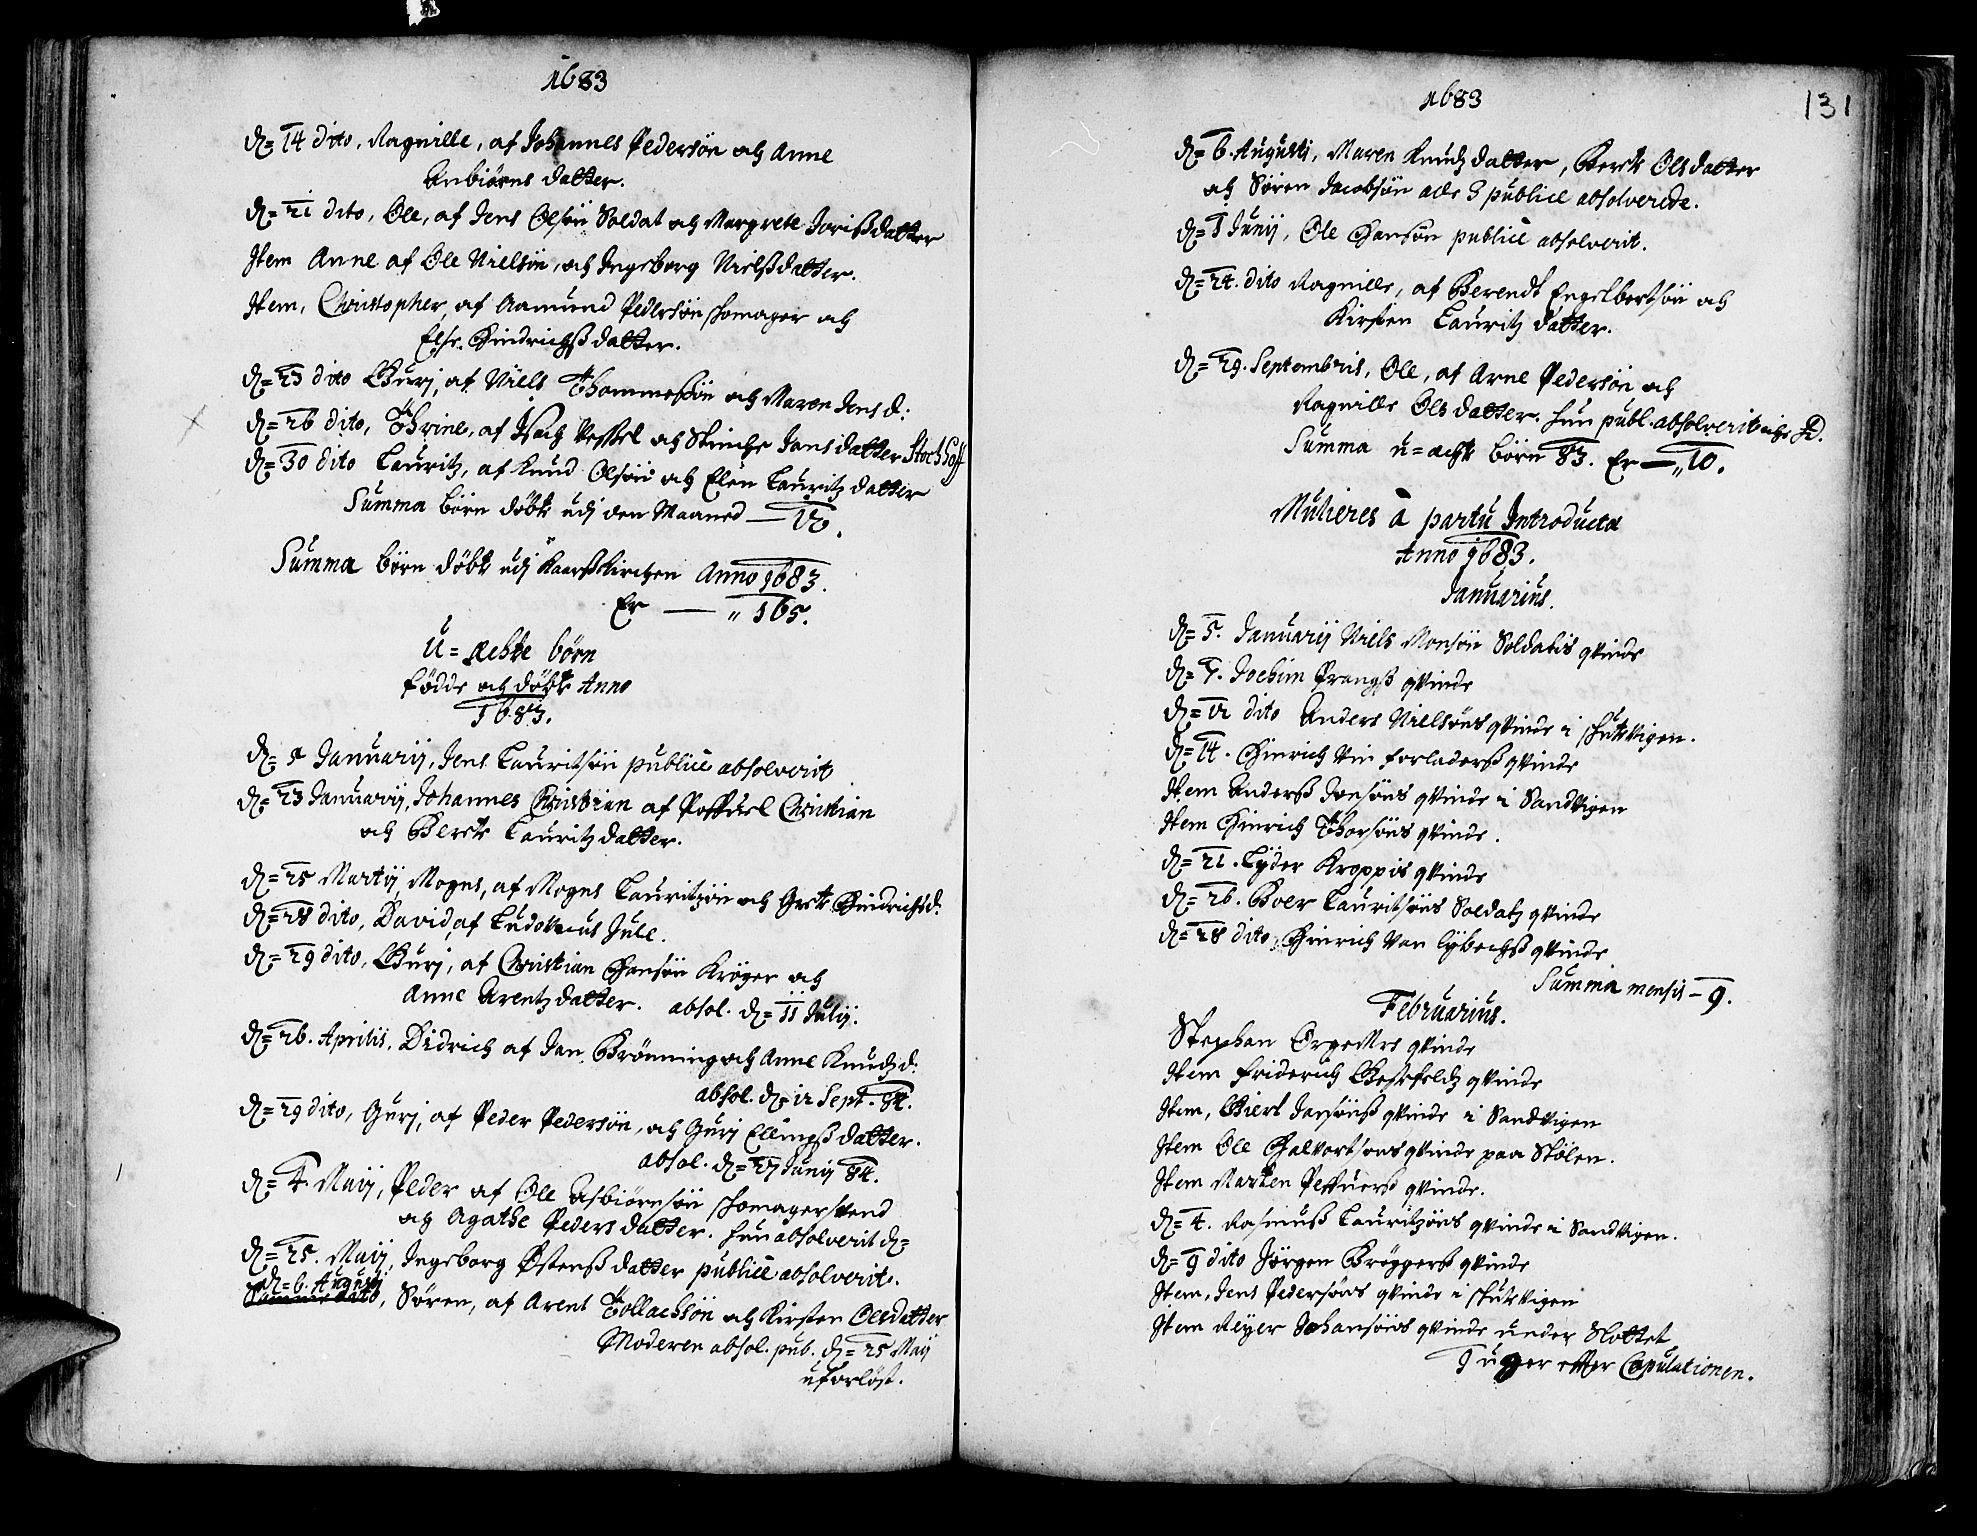 1683
D= 14 dito, Ragnille, af Johannes Pedersøn och Anne
Anbiørns datter.
D= 21 dito, Ole, af Jens Olsøn Soldat och Margrete Jorißdatter
Item Anne af Ole Nielsøn, och Ingeborg Nielßdatter.
Item, Christopher, af Aamund Pedersøn skomager och
Else Hindrichß datter.
D= 23 dito Guri, af Niels Thommesøn och Maren Jens d:
D= 26 dito, Thrine, af Isach Wessel och Stinche Jans datter Stochhoff
D= 30 dito Lauritz, af Knud Olsøn och Elen Lauritz datter
Summa børn døbte udj den Maaned — 12.
Summa børn døbte udj Kaarßkirchen Anno 1683.
Er — „ 165.
U= Æchte børn
fødde och døbte Anno
1683.
D= 1 Januarij, Jens Lauritsøn publice absolverit
D= 23 Januarij, Johannes Christian af Christian
och Berete Lauritz datter.
D= 25 Martij, Mogns, af Mogns Lauritzøn och Grete Hindrichsd:
D= 28 dito, David, af Ludovicus Juel.
D= 29 dito, Guri, af Christian Hansøn Krøger och
Anne Arentz datter. absol. D= 11 Julij.
D= 26. Aprilis, Didrich af Jan Brønning och Anne Knudz d:
absol. D= 12 Sept. 84.
D= 29 dito, Guri, af Peder Pedersøn, och Guri Ellingß datter.
absol. D= 27 Junij 84.
D= 4. Maij, Peder af Ole Asbiørnsøn skomagersvend
og Agathe Peders datter. hun absolverit D=
D= 25. Maij, Ingeborg Østenß datter publice absolverit.
D= 6. Augusti
Samme dito, Søren, af Arent Tollachsøn och Kirsten Olsdatter
Moderen absol. pub. D= 25 Maij
uforløst.
1683
131
D= 6. Augusti, Maren Knudz datter, Berete Olsdatter
och Søren Jacobsøn alle 3 publice absolverede.
D= 1 Junij, Ole Hansøn publice absolverit.
D= 24. dito Ragnille, af Berendt Engelbertsøn och
Kirsten Lauritz datter.
D= 29. Septembris, Ole, af Arne Pedersøn och
Ragnille Ols datter. hun publ. absolverit
Summa u= ægte børn 83. Er — „10.
Mulieres à partu Introductæ
Anno 1683.
Januarius.
D= 5. Januarij Niels Monsøn Soldatis qvinde
D= 7. Jochim Prangß qvinde
D= 12 dito Anders Nielsøns qvinde i skutevigen.
D= 14. Hinrich Vin forladerß qvinde
Item Anderß Jonsøns qvinde i Sandvigen
Item Hinrich Thorsøns qvinde.
D= 21. Lyder Kroppis qvinde
D= 26. Boer Lauritsøns Soldatz qvinde
D= 28 dito, Hinrich Van Lybechß qvinde
Summa mensis — 9.
Februarius.
Stephan qvinde
Item Friderich Besefeldz qvinde
Item, Giert Jansønß qvinde i Sandvigen
Item Ole Halvorsøns qvinde paa Stølen.
Item Marten qvinde.
D= 4. Rasmuß Lauritzøns qvinde i Sandvigen.
D= 9 dito Jørgen Brøggerß qvinde
Item, Jens Pedersøns qvinde i skutevigen
Item Reyer Johansøns qvinde under Slottet
9 uger effter Copulationen.